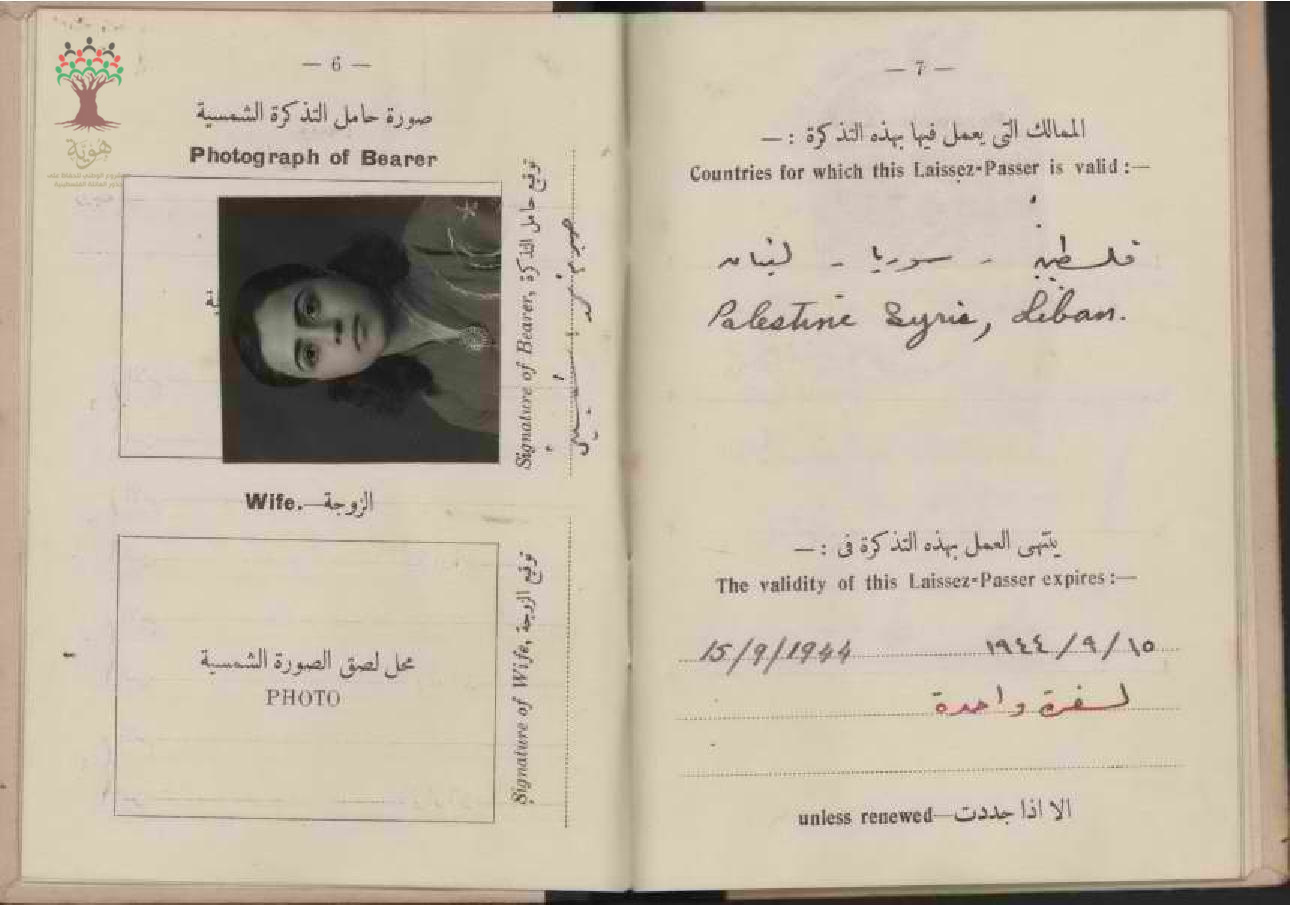 هوية
— 6 —
صورة حامل التذكرة الشمسية
Photograph of Bearer
Signature of Bearer, توقيع حامل التذكرة
Wife.—الزوجة
محل لصق الصورة الشمسية
PHOTO
Signature of Wife, توقيع الزوجة
— 7 —
الممالك التي يعمل فيها بهذه التذكرة : —
Countries for which this Laissez-Passer is valid :—
فلسطين - سوريا - لبنان
Palestine Syrie, Liban.
ينتهى العمل بهذه التذكرة فى : —
The validity of this Laissez-Passer expires :—
15/9/1944 ١٩٤٤/٩/١٥
لسفرة واحدة
unless renewed—الا اذا جددت